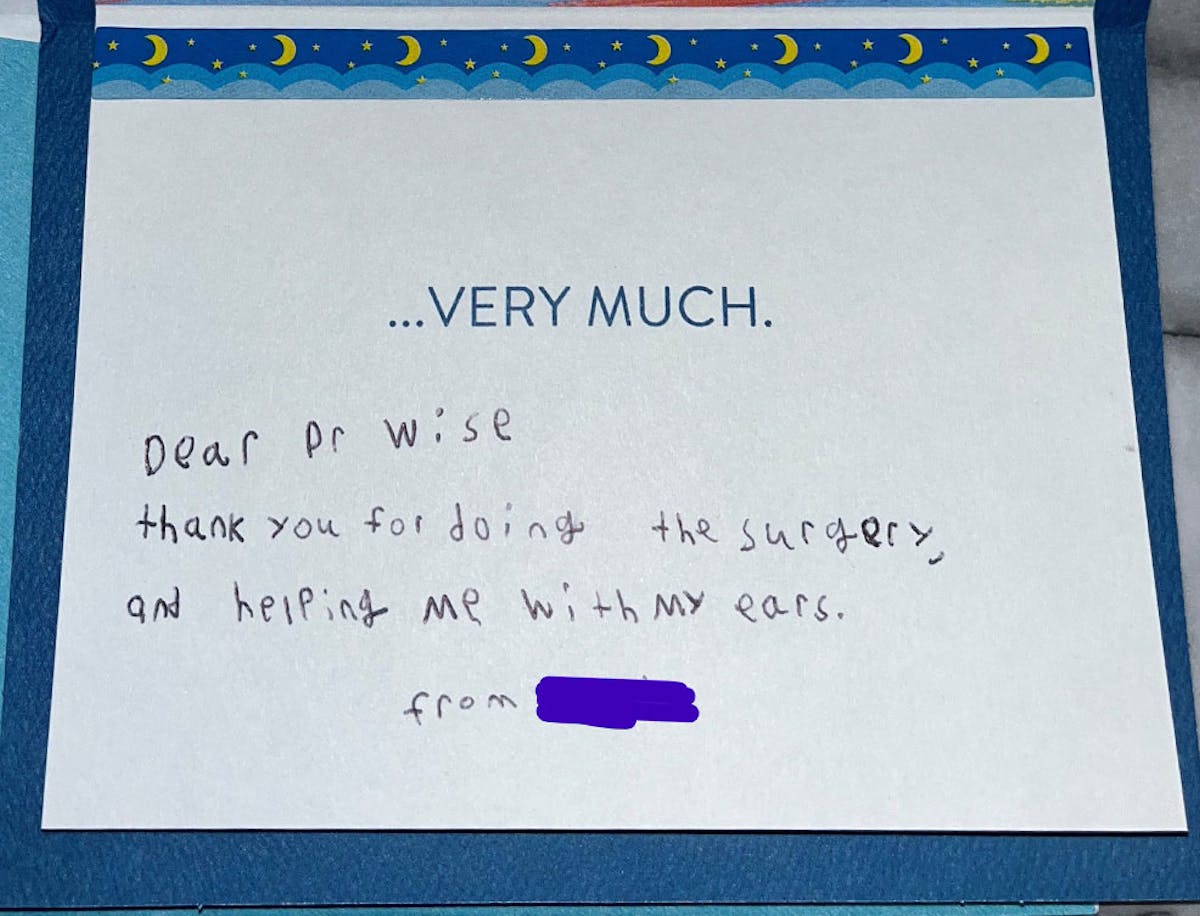 ...VERY MUCH.
Dear Dr Wise
thank you for doing the surgery,
and helping me with my ears.
from